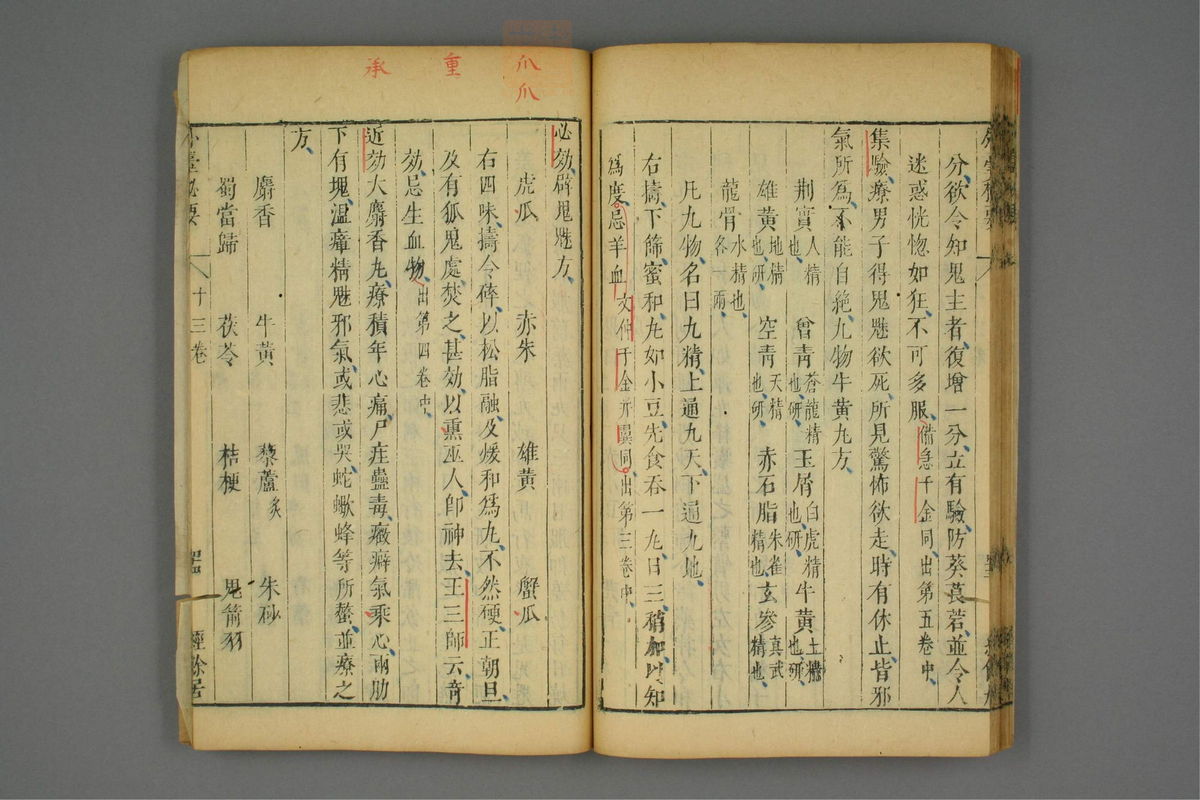 分欲令知鬼主者復增一分立有驗防葵莨若並令人
迷惑恍惚如狂不可多服備急千金同出第五卷中
集驗療男子得鬼魅欲死所見驚怖欲走時有休止皆邪
氣所為不能自絕九物牛黃丸方
荆實人精也 曾青蒼龍精也研 玉屑白虎精也研 牛黃土精也研
雄黃地精也研 空青天精也研 赤石脂朱雀精也 玄參真武精也
龍骨水精也各一兩
凡九物名曰九精上通九天下通九地
右擣下篩蜜和丸如小豆先食吞一丸日三稍加以知
為度忌羊血文仲千金并翼同出第三卷中
重
承
爪
爪
必効辟鬼魅方
虎瓜 赤朱 雄黃 蟹瓜
右四味擣令碎以松脂融及煖和為丸不然硬正朝旦
及有狐鬼處焚之甚効以熏巫人即神去王三師云奇
効忌生血物出第四卷中
近効大麝香丸療積年心痛尸疰蠱毒癥癖氣乘心兩肋
下有塊溫瘴精魅邪氣或悲或哭蛇蠍蜂等所螫並療之
方
麝香 牛黃 藜蘆炙 朱砂
蜀當歸 茯苓 桔梗 鬼箭羽
十三卷
經餘居